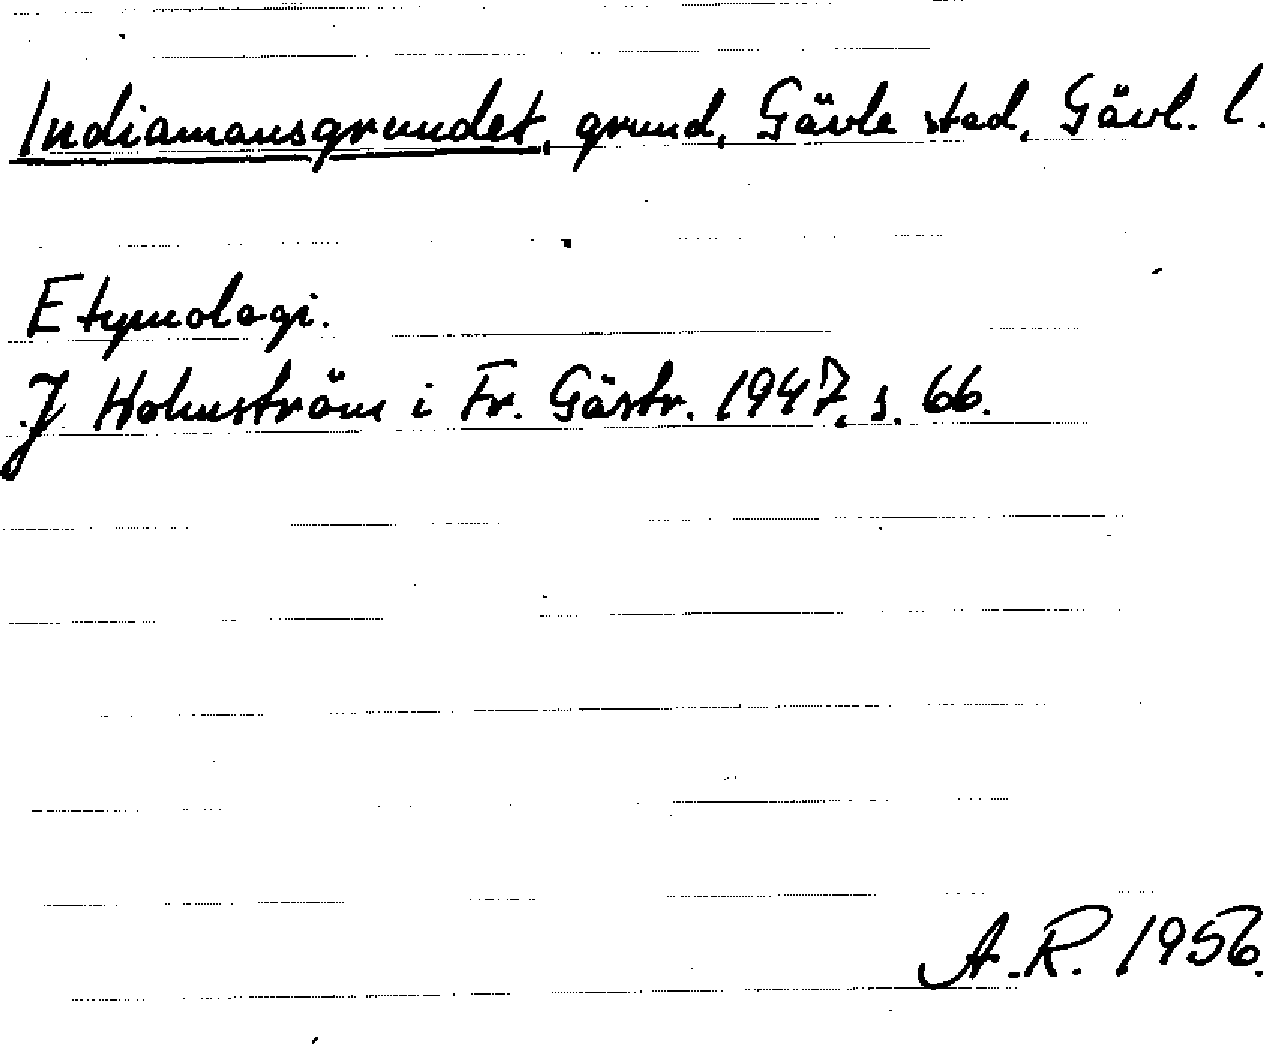 Indiamansgrundet, grund, Gävle stad, Gävl. l.
Etymologi.
J Holmström i Fr. Gästr. 1947, s. 66.
A.R. 1956.